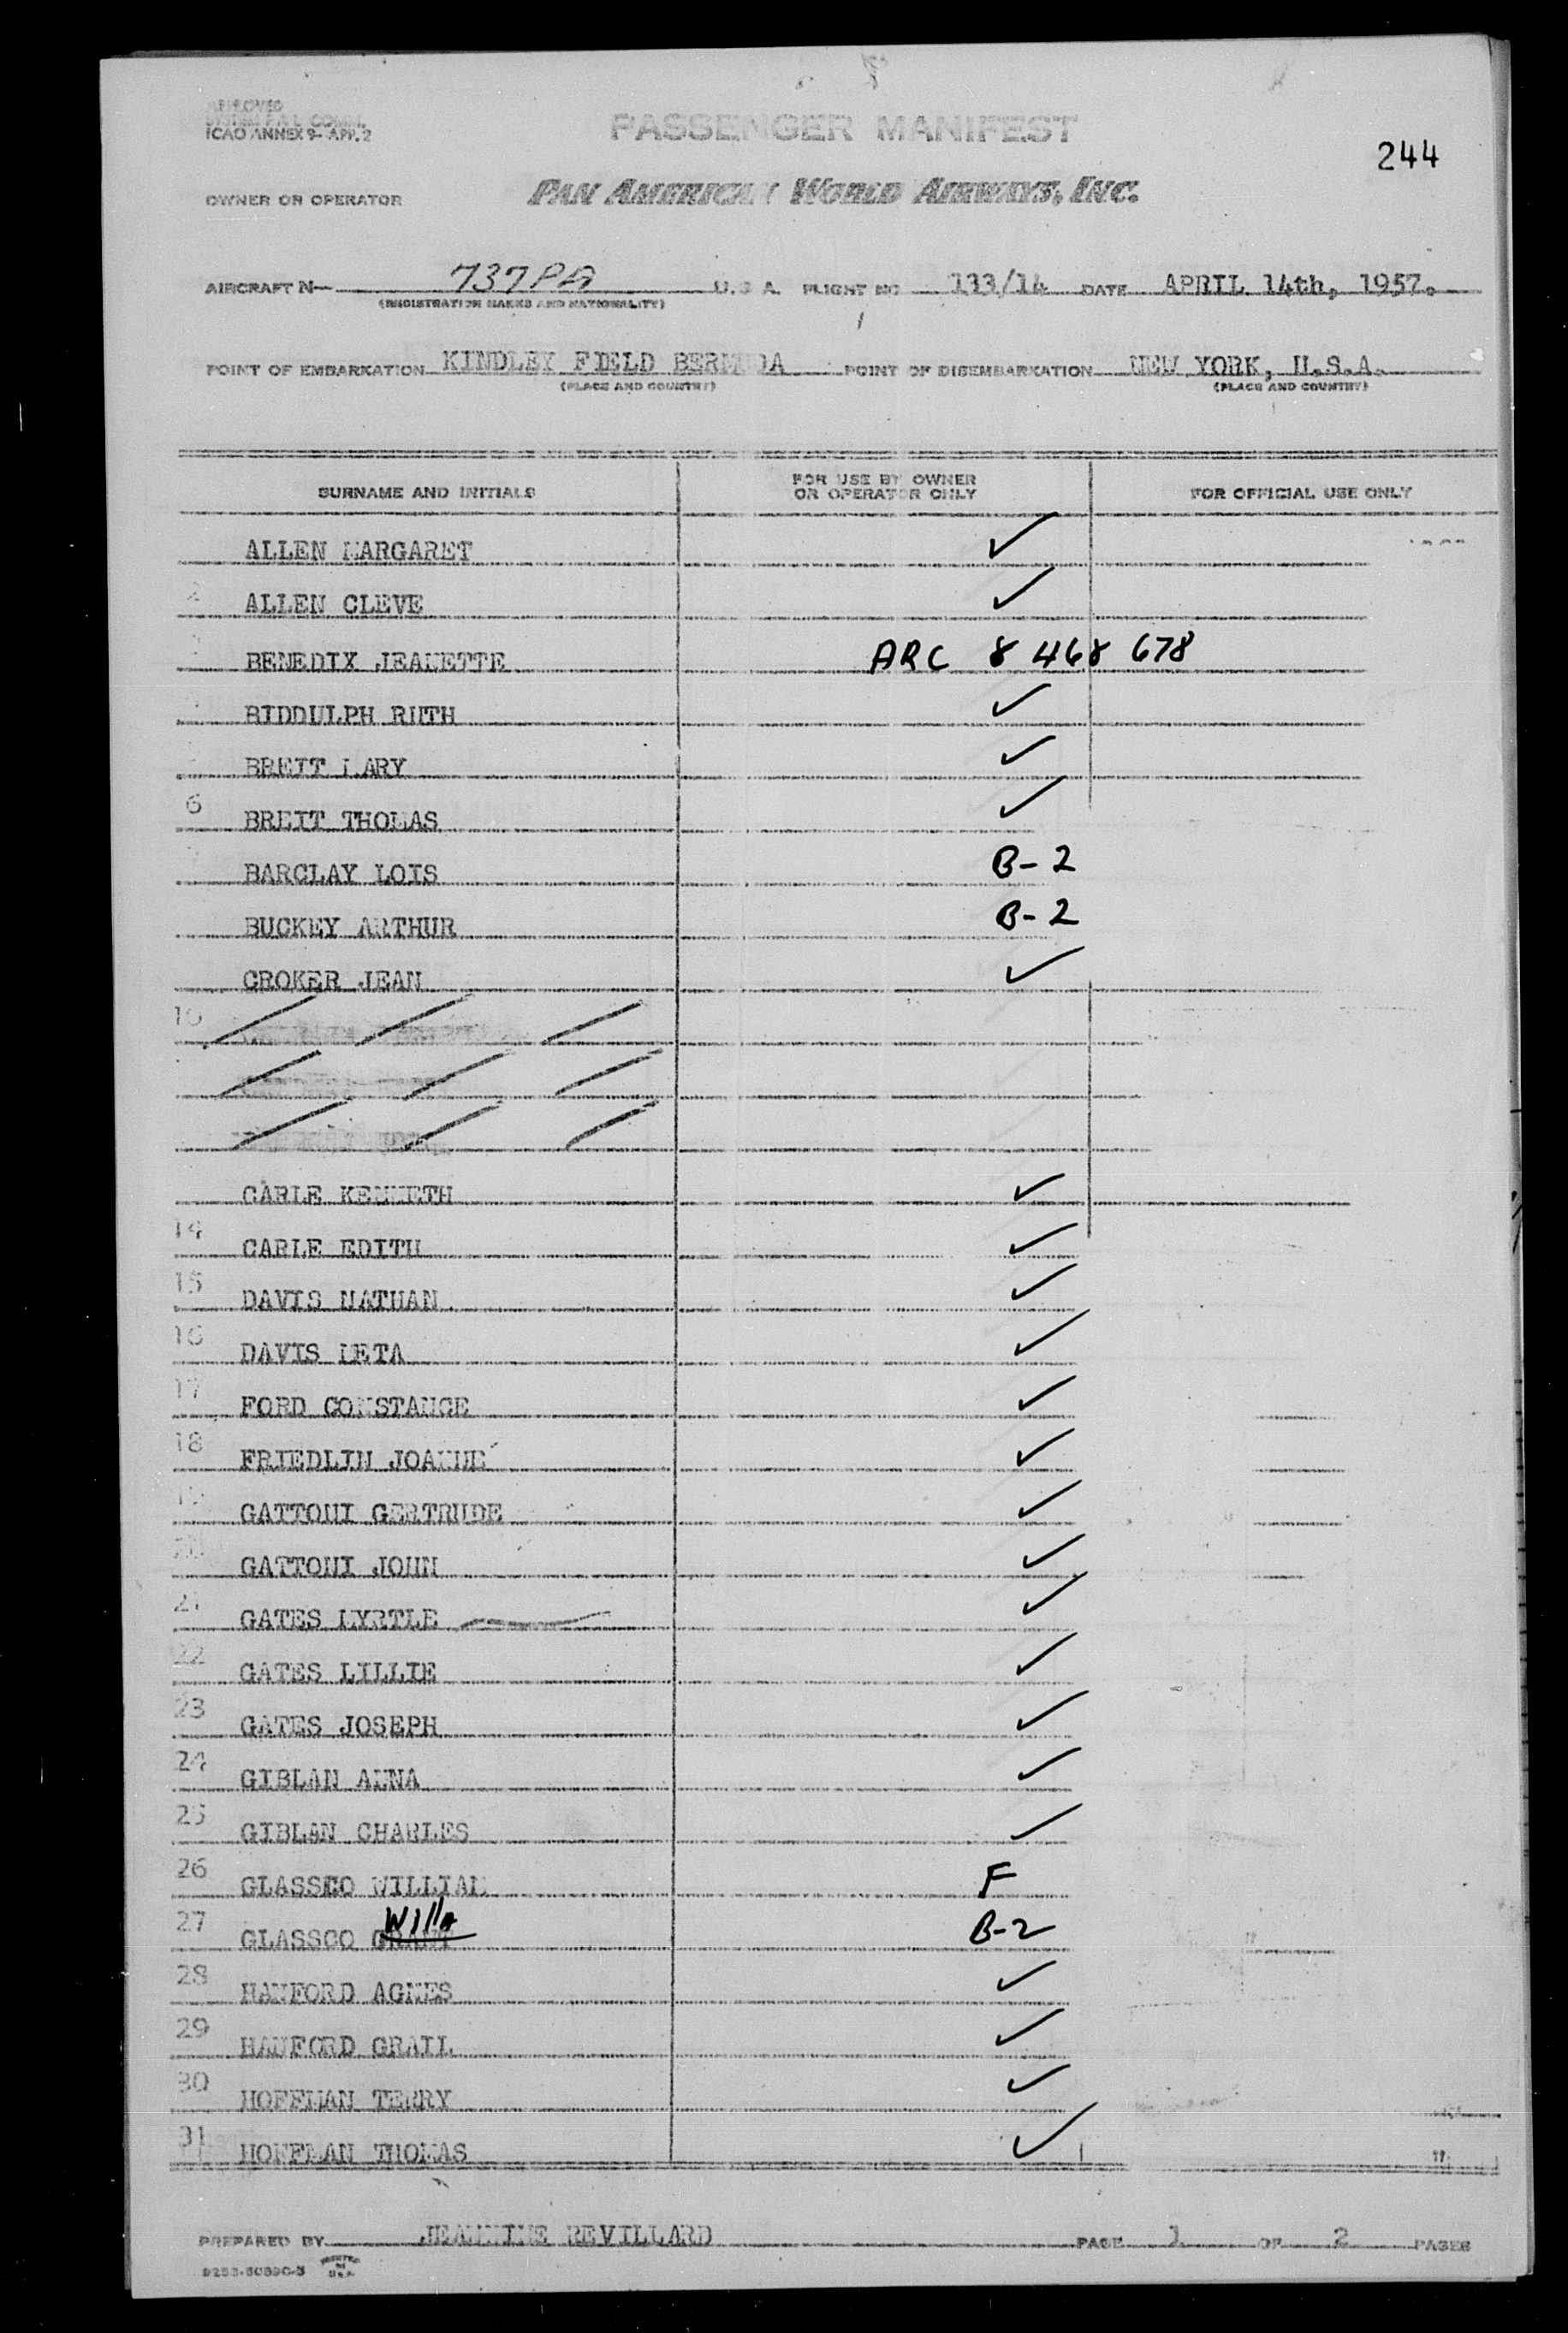 APPROVED
ICAO ANNEX 9- APP. 2
PASSENGER MANIFEST
244
OWNER OR OPERATOR PAN AMERICAN WORLD AIRWAYS, INC.
AIRCRAFT N- 737PA U.S.A. FLIGHT NO 133/14 DATE APRIL 14th, 1957.
(REGISTRATION MARKS AND NATIONALITY)
POINT OF EMBARKATION KINDLEY FIELD BERMUDA POINT OF DISEMBARKATION NEW YORK, U.S.A.
(PLACE AND COUNTRY) (PLACE AND COUNTRY)
SURNAME AND INITIALS FOR USE BY OWNER OR OPERATOR ONLY FOR OFFICIAL USE ONLY
ALLEN MARGARET ✓
2 ALLEN CLEVE ✓
BENEDIX JEANETTE ARC 8 468 678
BIDDULPH RUTH ✓
BREIT MARY ✓
6 BREIT THOMAS ✓
BARCLAY LOIS B-2
BUCKEY ARTHUR B-2
CROKER JEAN ✓
10
CARLE KENNETH ✓
14 CARLE EDITH ✓
15 DAVIS NATHAN ✓
16 DAVIS LETA ✓
17 FORD CONSTANCE ✓
18 FRIEDLIN JOANNE ✓
19 GATTONI GERTRUDE ✓
20 GATTONI JOHN ✓
21 GATES MYRTLE ✓
22 GATES LILLIE ✓
23 GATES JOSEPH ✓
24 GIBLAN ANNA ✓
25 GIBLAN CHARLES ✓
26 GLASSCO WILLIAM F
Willa
27 GLASSCO GRANT B-2
28 HANFORD AGNES ✓
29 HANFORD GRAIL ✓
30 HOFFMAN TERRY ✓
31 HOFFMAN THOMAS ✓
PREPARED BY JEANNINE REVILLARD PAGE 1 OF 2 PAGES
PRINTED IN U.S.A.